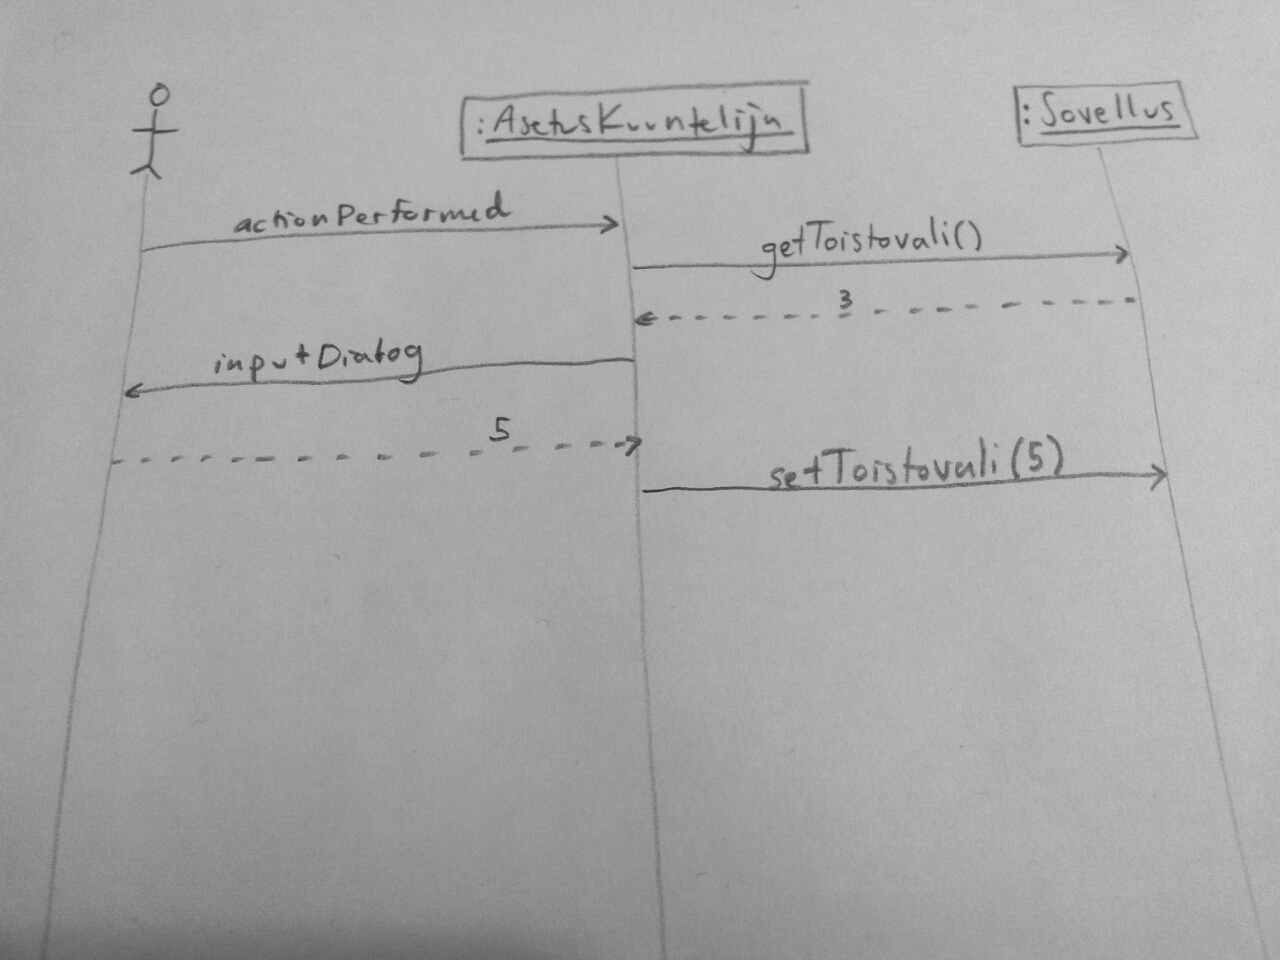 :AsetusKuuntelija
:Sovellus
actionPerformed
getToistovali()
3
inputDialog
5
setToistovali(5)